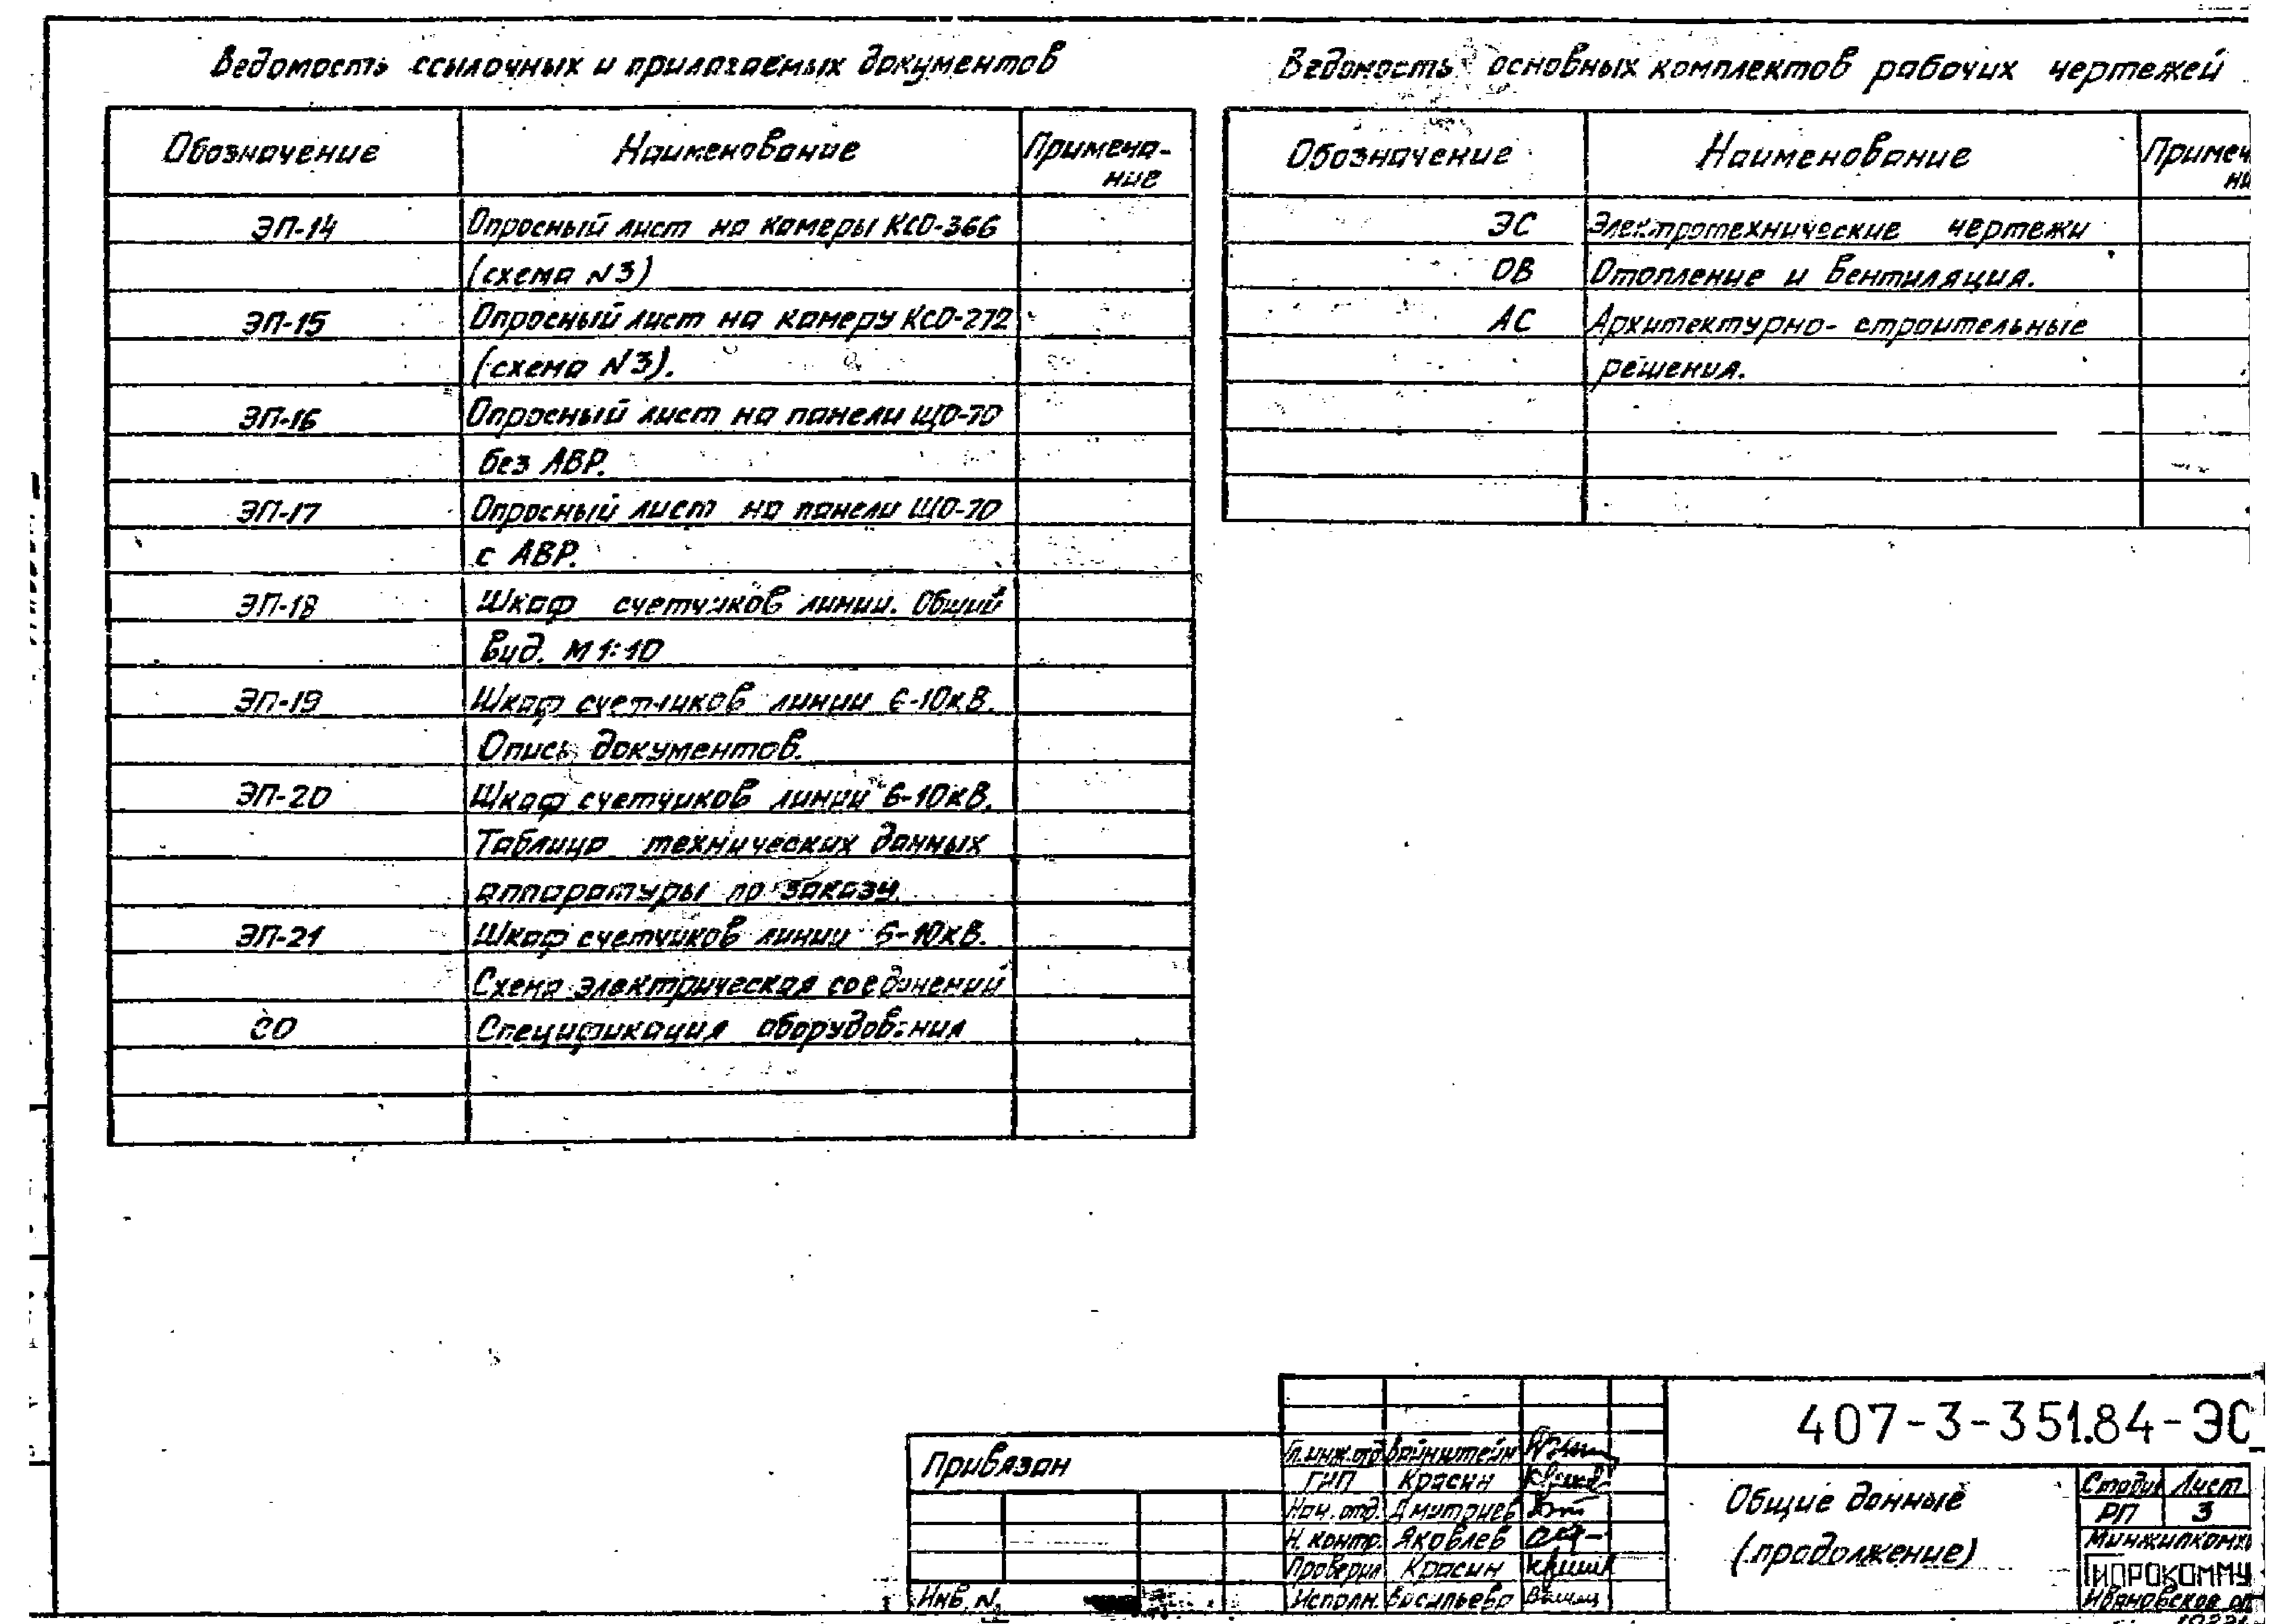 Ведомость ссылочных и прилагаемых документов
Обозначение Наименование Примеча-
ние
ЭП-14 Опросный лист на камеры КСО-366
(схема N3)
ЭП-15 Опросный лист на камеру КСО-272
(схема N3).
ЭП-16 Опросный лист на панели ЩО-70
без АВР.
ЭП-17 Опросный лист на панели ЩО-70
с АВР.
ЭП-18 Шкаф счетчиков линии. Общий
вид. М 1:10
ЭП-19 Шкаф счетчиков линии 6-10кВ.
Опись документов.
ЭП-20 Шкаф счетчиков линии 6-10кВ.
Таблица технических данных
аппаратуры по заказу.
ЭП-21 Шкаф счетчиков линии 6-10кВ.
Схема электрическая соединений
СО Спецификация оборудования
Ведомость основных комплектов рабочих чертежей
Обозначение Наименование Примеч
ни
ЭС Электротехнические чертежи
ОВ Отопление и вентиляция.
АС Архитектурно-строительные
решения.
Привязан
Инв. N
Гл.инж.отд Вайнштейн
ГИП Красин
Нач. отд. Дмитриев
Н. контр. Яковлев
Проверил Красин
Исполн. Васильева
407-3-351.84-ЭС
Общие данные
(продолжение)
Стадия Лист
РП 3
Минжилкомх
ГИПРОКОММУ
Ивановское от